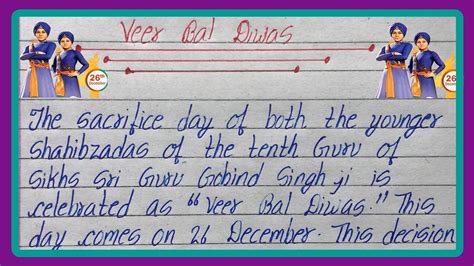 Veer Bal Diwas
26th
December
26th
December
The sacrifice day of both the younger
Shahibzadas of the tenth Guru of
Sikhs Sri Guru Gobind Singh ji is
celebrated as "Veer Bal Diwas." This
day comes on 26 December. This decision